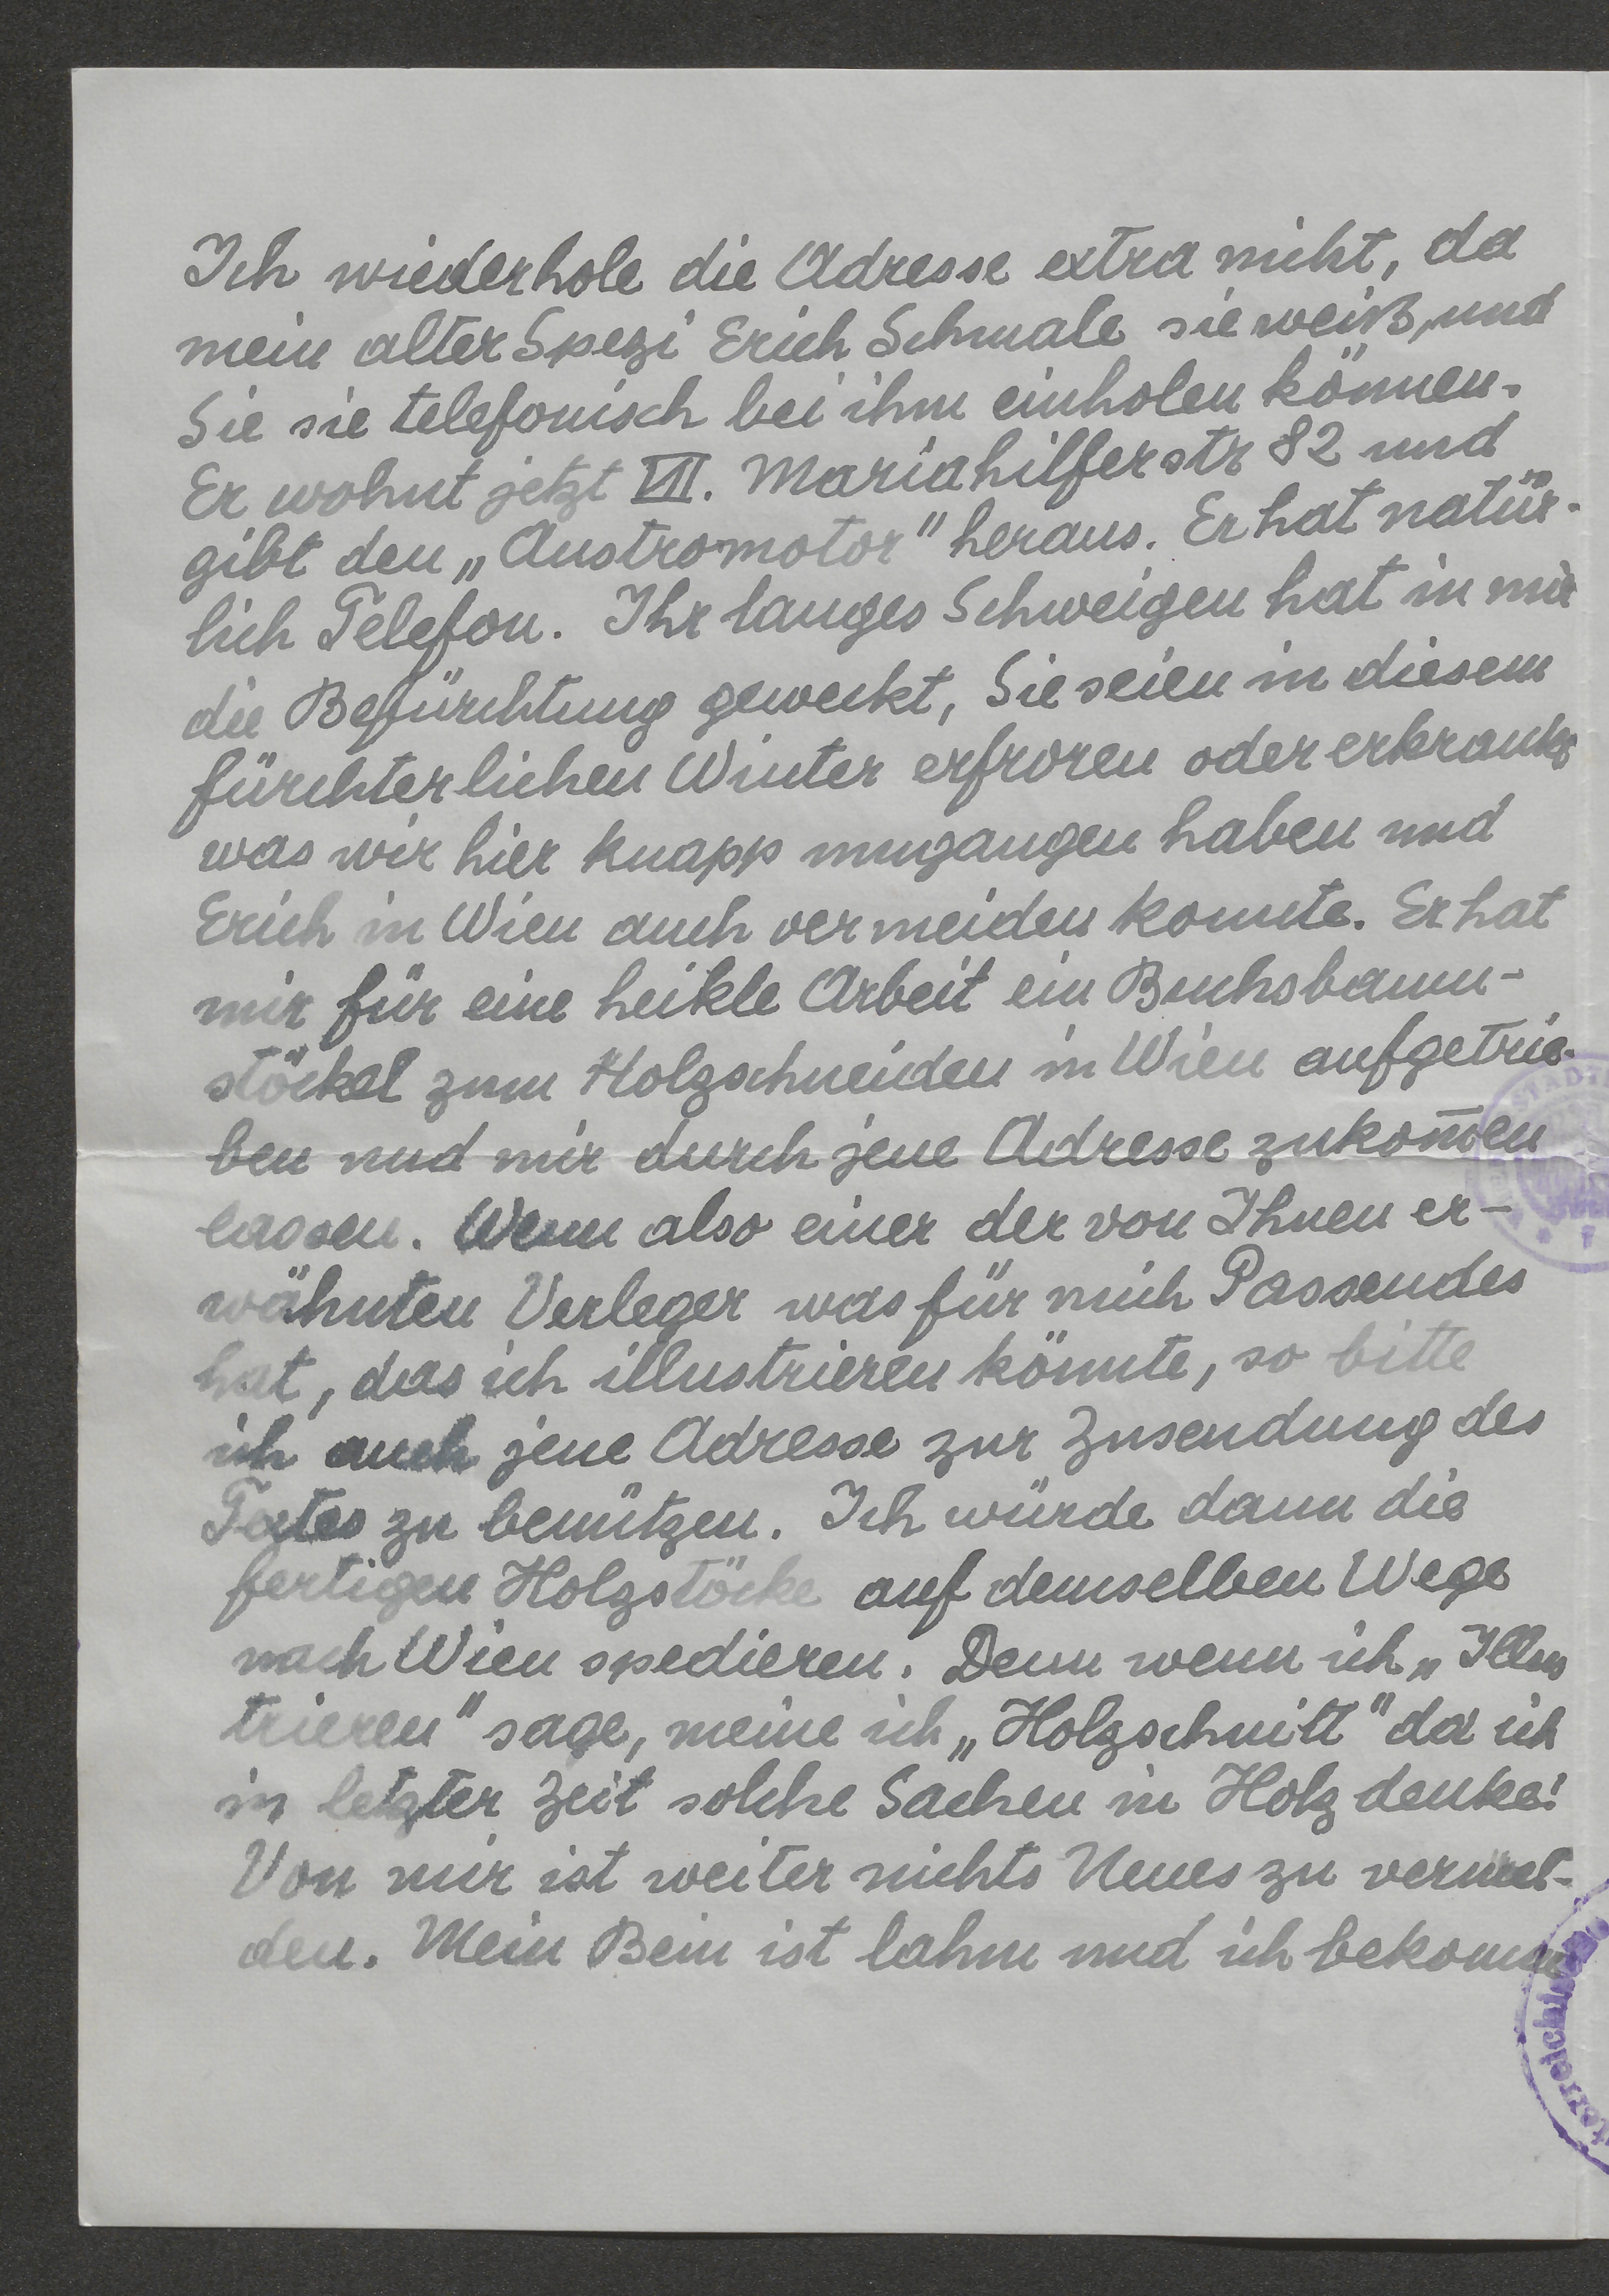 Ich wiederhole die Adresse extra nicht, da
mein alter Spezi Erich Schmale sie weiß, und
Sie sie telefonisch bei ihm einholen können.
Er wohnt jetzt VII. Mariahilferstr 82 und
gibt den „Austromotor" heraus. Er hat natür-
lich Telefon. Ihr langes Schweigen hat in mir
die Befürchtung geweckt, Sie seien in diesem
fürchterlichen Winter erfroren oder erkrankt,
was wir hier knapp umgangen haben und
Erich in Wien auch vermeiden konnte. Er hat
mir für eine heikle Arbeit ein Buchsbaum-
stöckel zum Holzschneiden in Wien aufgetrie-
ben und mir durch jene Adresse zukom̄en
lassen. Wenn also einer der von Ihnen er-
wähnten Verleger was für mich Passendes
hat, das ich illustrieren könnte, so bitte
ich auch jene Adresse zur Zusendung des
Textes zu benützen. Ich würde dann die
fertigen Holzstöcke auf demselben Wege
nach Wien spedieren. Denn wenn ich „Illus
trieren" sage, meine ich „Holzschnitt" da ich
in letzter Zeit solche Sachen in Holz denke!
Von mir ist weiter nichts Neues zu vermel-
den. Mein Bein ist lahm und ich bekomme
STADT
terreichische